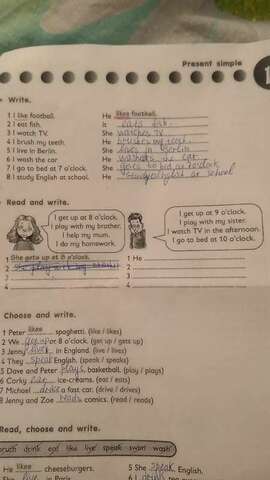 Present simple
1
Write.
1 I like football. He likes football.
2 I eat fish. It eats fish.
3 I watch TV. She watches TV
4 I brush my teeth. He brushes my teeth
5 I live in Berlin. She lives in Berlin
6 I wash the car He washes the car
7 I go to bed at 7 o'clock. She goes to bed at o'clock
8 I study English at school. He at school
Read and write.
I get up at 8 o'clock.
I play with my brother.
I help my mum.
I do my homework.
I get up at 9 o'clock.
I play with my sister.
I watch TV in the afternoon.
I go to bed at 10 o'clock.
1 She gets up at 8 o'clock. 1 He
2 She play with my 2
3 3
4 4
Choose and write.
1 Peter likes spaghetti. (like / likes)
2 We get up at 8 o'clock. (get up / gets up)
3 Jenny lives in England. (live / lives)
4 They speak English. (speak / speaks)
5 Dave and Peter plays basketball. (play / plays)
6 Corky eats ice-creams. (eat / eats)
7 Michael drive a fast car. (drive / drives)
8 Jenny and Zoe reads comics. (read / reads)
Read, choose and write.
brush drink eat like live speak swim wash
He likes cheeseburgers. 5 She speak English.
She live in Paris. 6 I